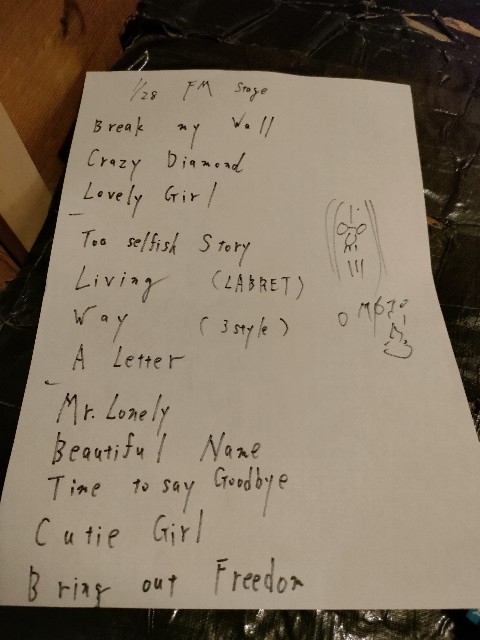 1/28 FM Stage
Break my Wall
Crazy Diamond
Lovely Girl
Too selfish Story
Living (LABRET)
Way (3style)
A Letter
Mr. Lonely
Beautiful Name
Time to say Goodbye
Cutie Girl
Bring out Freedom